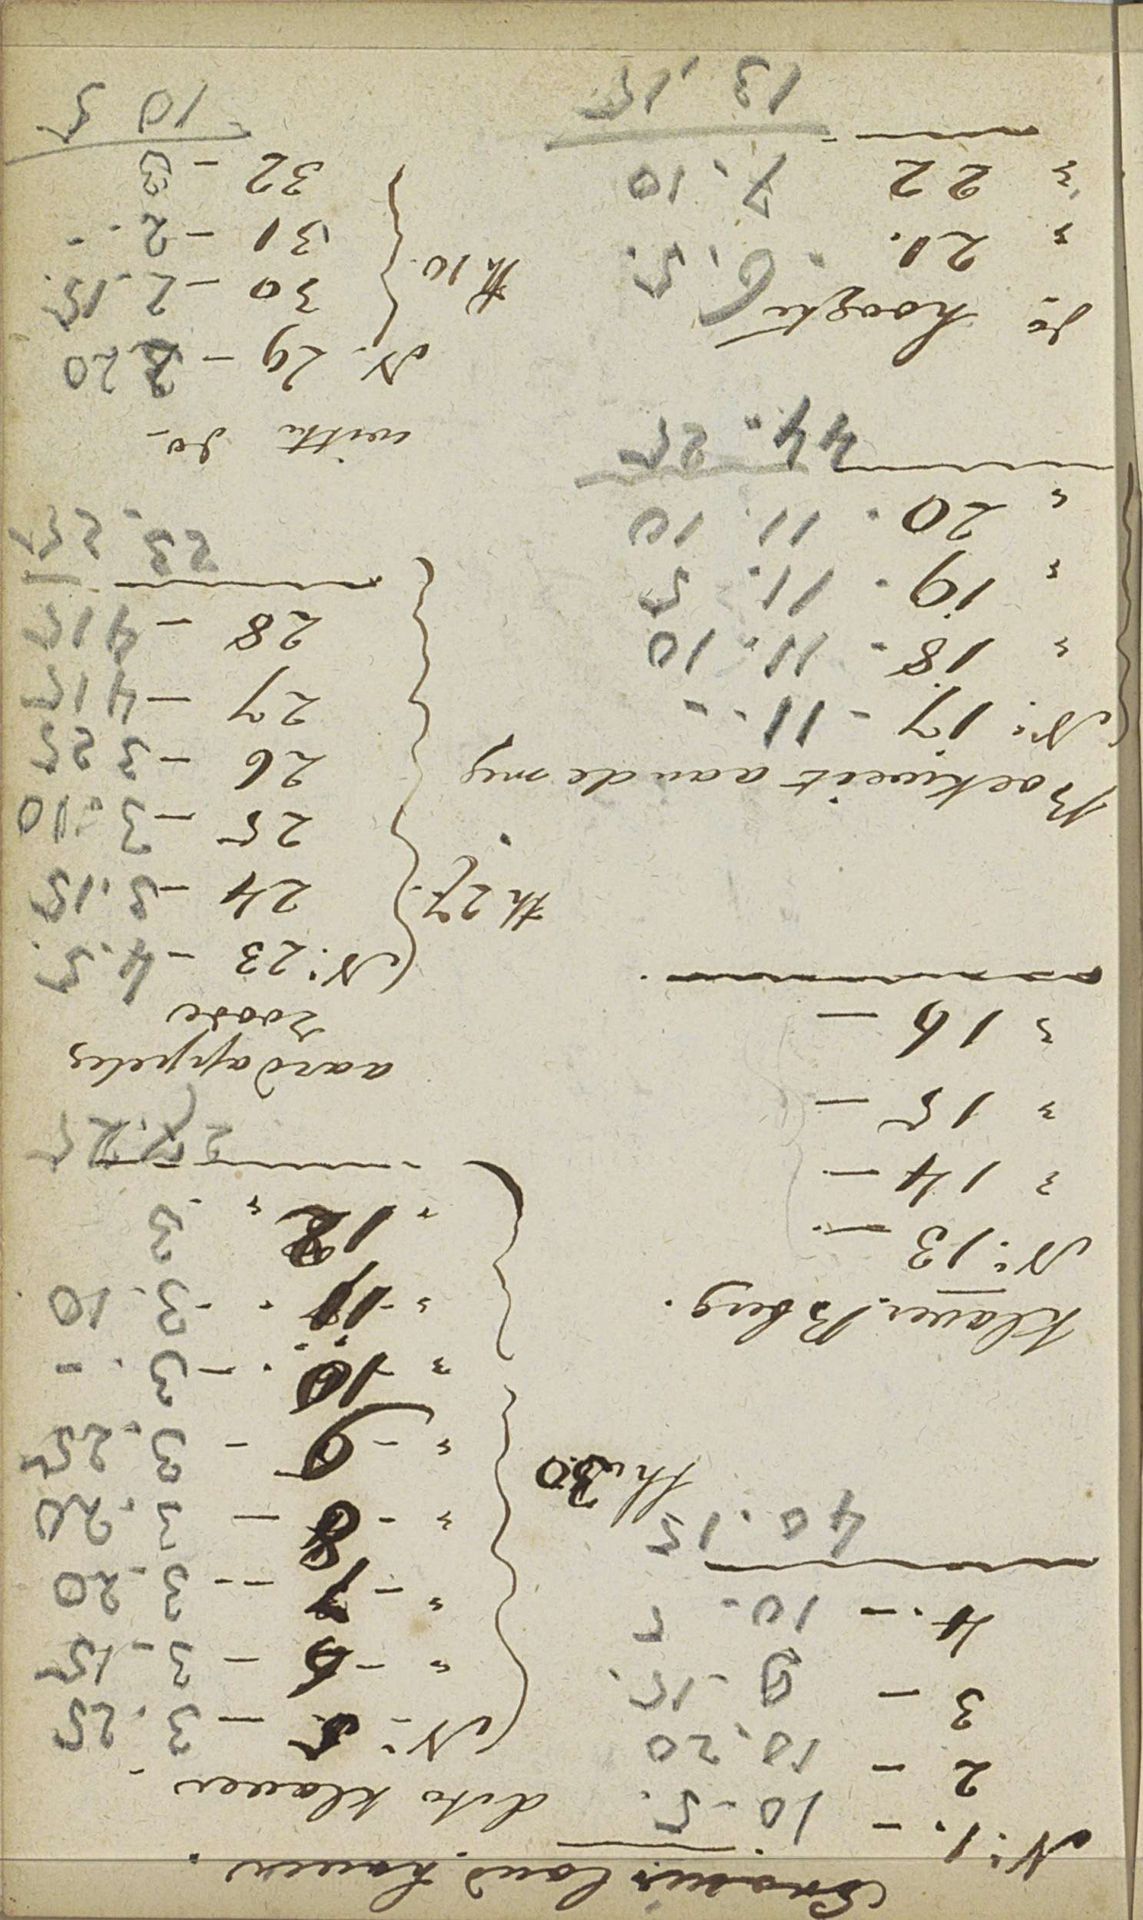 land haver.
N: 1. - 10 - 5.
2 - 10.20
3 - 9 - 15.
4. - 10 - 5
40.15
Klaver Bberg.
N: 13 -
" 14 -
" 15 -
" 16 -
Boekweit aan de my
N: 17 - 11 - -
" 18 - 11. 10
" 19 - 11. 5
" 20. 11. 10
44. 25
do hoogte
" 21. 6. 5.
" 22 7. 10
13. 15
dito klaver
N: - 5 - 3. 25
" - 6 - 3 - 15
" - 7 - - 3 - 20
" - 8 - 3. 20
" - 9 - 3. 25
" - 10 . - 3. -
" - 11 . - 3. 10
" 12 " 3
th 30
27. 25
aardappeles
roode
N: 23 - 4. 5.
24 - 3. 15
25 - 3. 10
26 - 3 25
27 - 4 15
28 - 4 15
th 27.
23. 25
witte do -
N. 29 - 2 20
30 - 2. 15.
31 - 2. -
32 - 3
th 10.
10 5